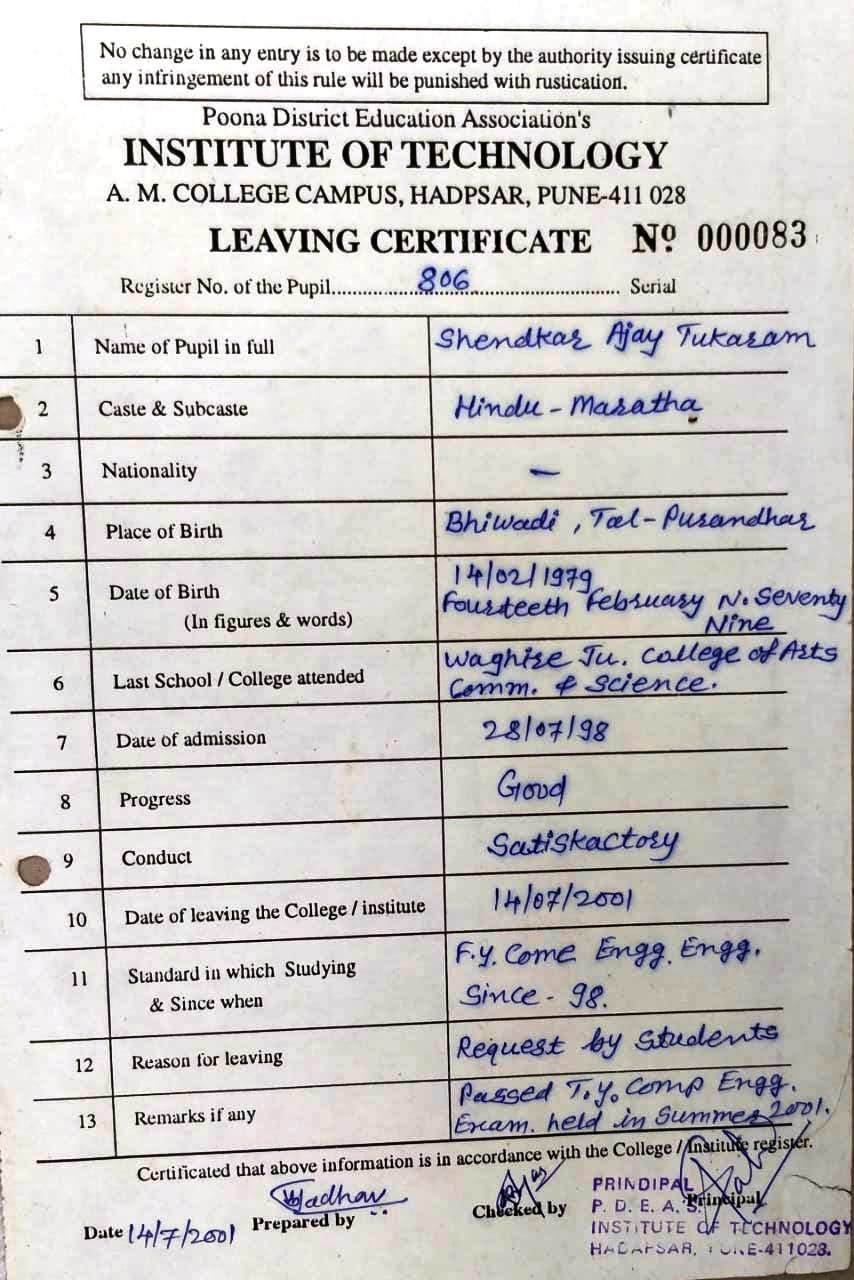 No change in any entry is to be made except by the authority issuing certificate
any infringement of this rule will be punished with rustication.
Poona District Education Association's
INSTITUTE OF TECHNOLOGY
A. M. COLLEGE CAMPUS, HADPSAR, PUNE-411 028
LEAVING CERTIFICATE Nº 000083
Register No. of the Pupil 806 Serial
1 Name of Pupil in full Shendkar Ajay Tukaram
2 Caste & Subcaste Hindu - Maratha
3 Nationality —
4 Place of Birth Bhiwadi, Tal-Purandhar
5 Date of Birth 14/02/1979
(In figures & words) Fourteeth February N. Seventy
Nine
6 Last School / College attended Waghire Ju. College of Arts
Comm. & Science.
7 Date of admission 28/07/98
8 Progress Good
9 Conduct Satiskactory
10 Date of leaving the College / institute 14/07/2001
11 Standard in which Studying F.Y. Come Engg. Engg.
& Since when Since - 98.
12 Reason for leaving Request by students
13 Remarks if any Passed T.Y. Comp Engg.
Exam. held in Summer 2001.
Certificated that above information is in accordance with the College / Institute register.
Date 14/7/2001 Prepared by Checked by Principal
PRINDIPAL
P. D. E. A. S.
INSTITUTE OF TECHNOLOGY
HADAPSAR, PUNE-411028.